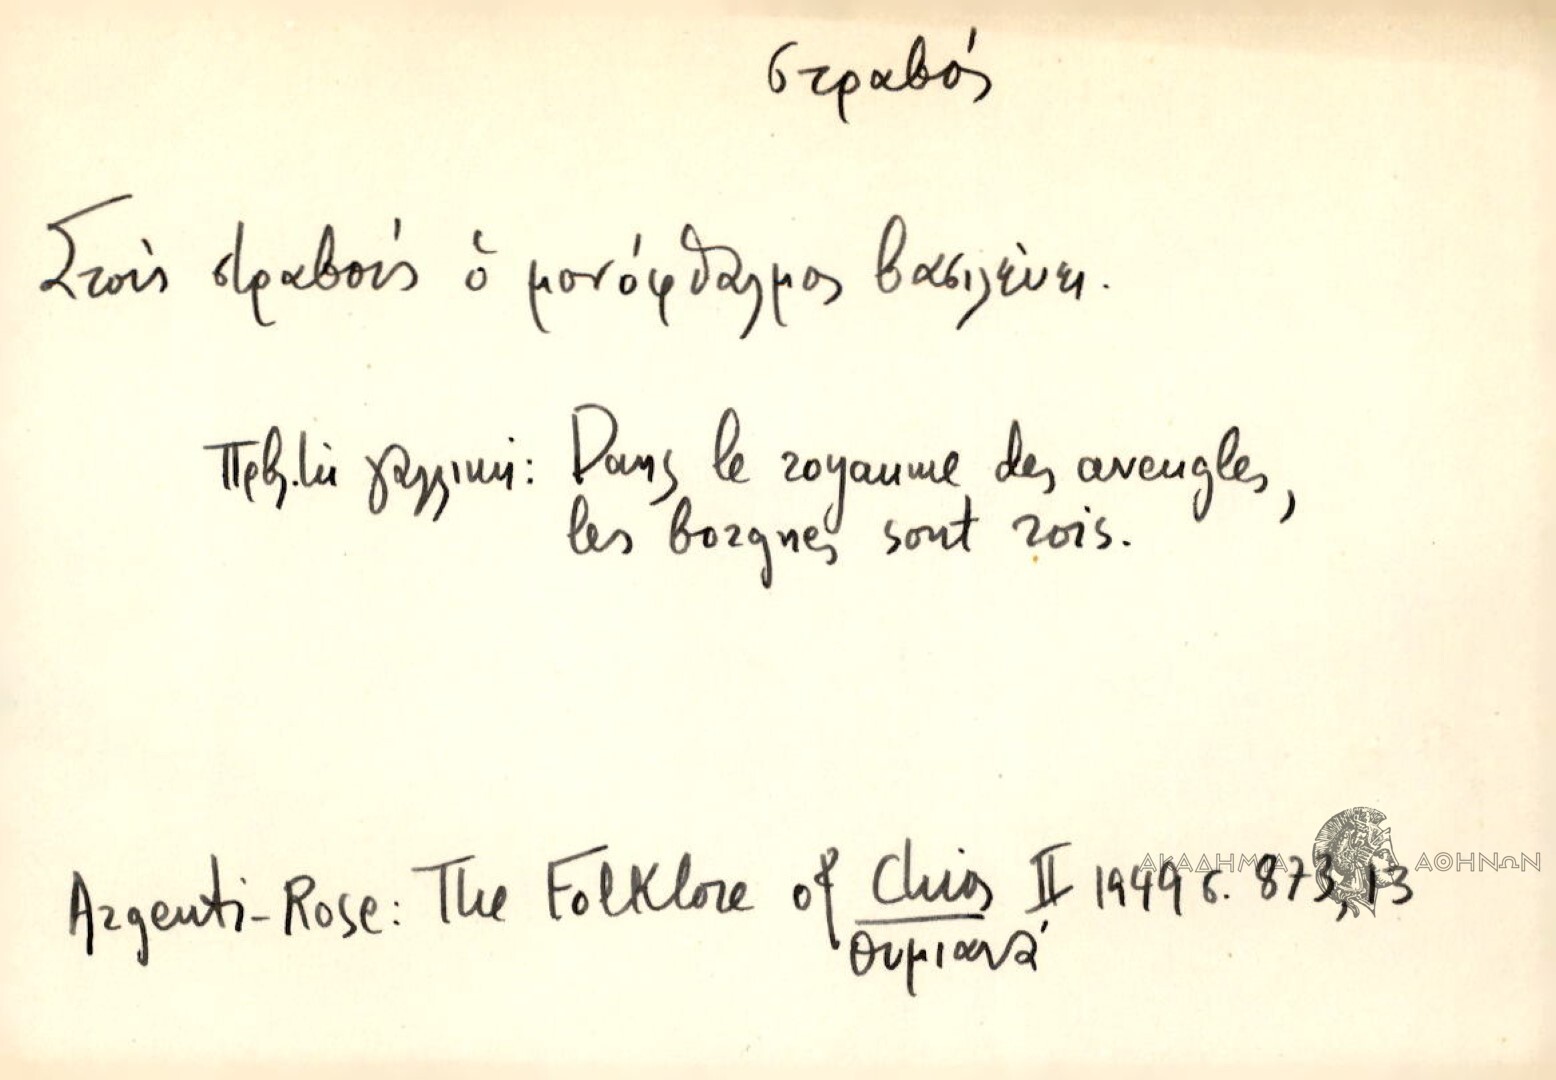 στραβός
Στοὺς στραβοὺς ὁ μονόφθαλμος βασιλεύει.
Πρβλ. τὴ γαλλική: Dans le royaume des aveugles,
les borgnes sont rois.
Argenti-Rose: The Folklore of Chios II 1949 σ. 873, 13
Θυμιανά
ΑΚΑΔΗΜΙΑ ΑΘΗΝΩΝ